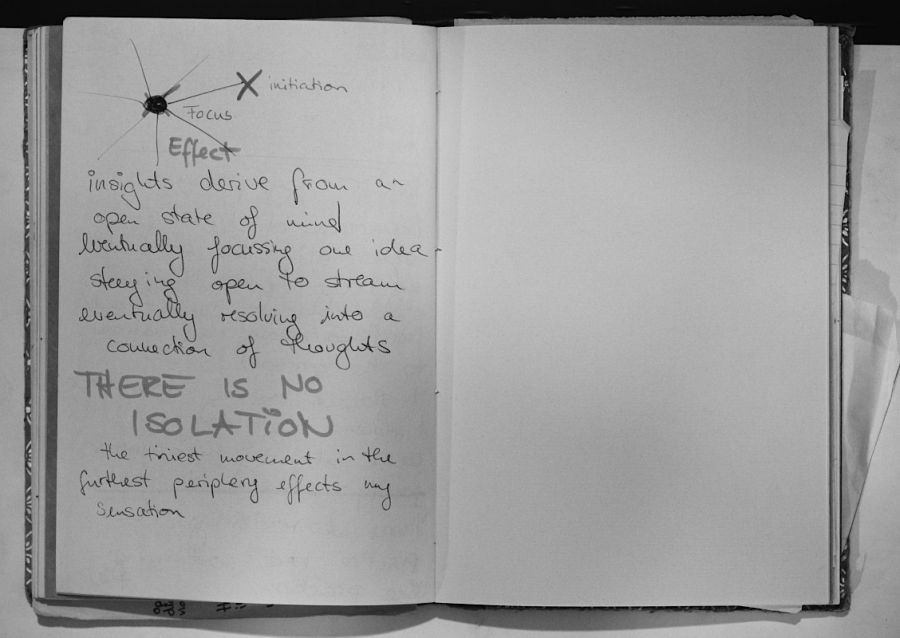 initiation
Focus
Effect
insights derive from an
open state of mind
eventually focussing one idea
steying open to stream
eventually resolving into a
connection of thoughts
THERE IS NO
ISOLATION
the tiniest movement in the
furthest periphery effects my
sensation